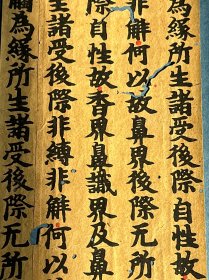 為緣所生諸受後際自性故
非解何以故鼻界後際无所
際自性故香界鼻識界及鼻
生諸受後際非縛非解何以
觸為緣所生諸受後際无所